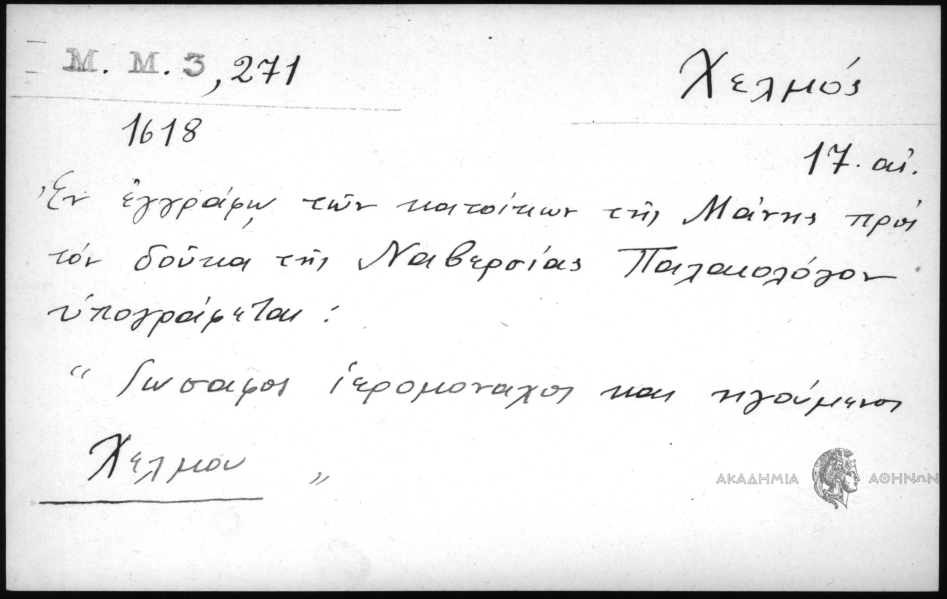 Μ. Μ. 3, 271
Χελμός
1618
17. αἰ.
Ἐν ἐγγράφῳ τῶν κατοίκων τῆς Μάνης πρός
τόν δοῦκα τῆς Ναβερσίας Παλαιολόγον
ὑπογράφεται:
" Ιωσαφος ἱερομοναχος και ηγούμενος
Χελμου "
ΑΚΑΔΗΜΙΑ ΑΘΗΝΩΝ